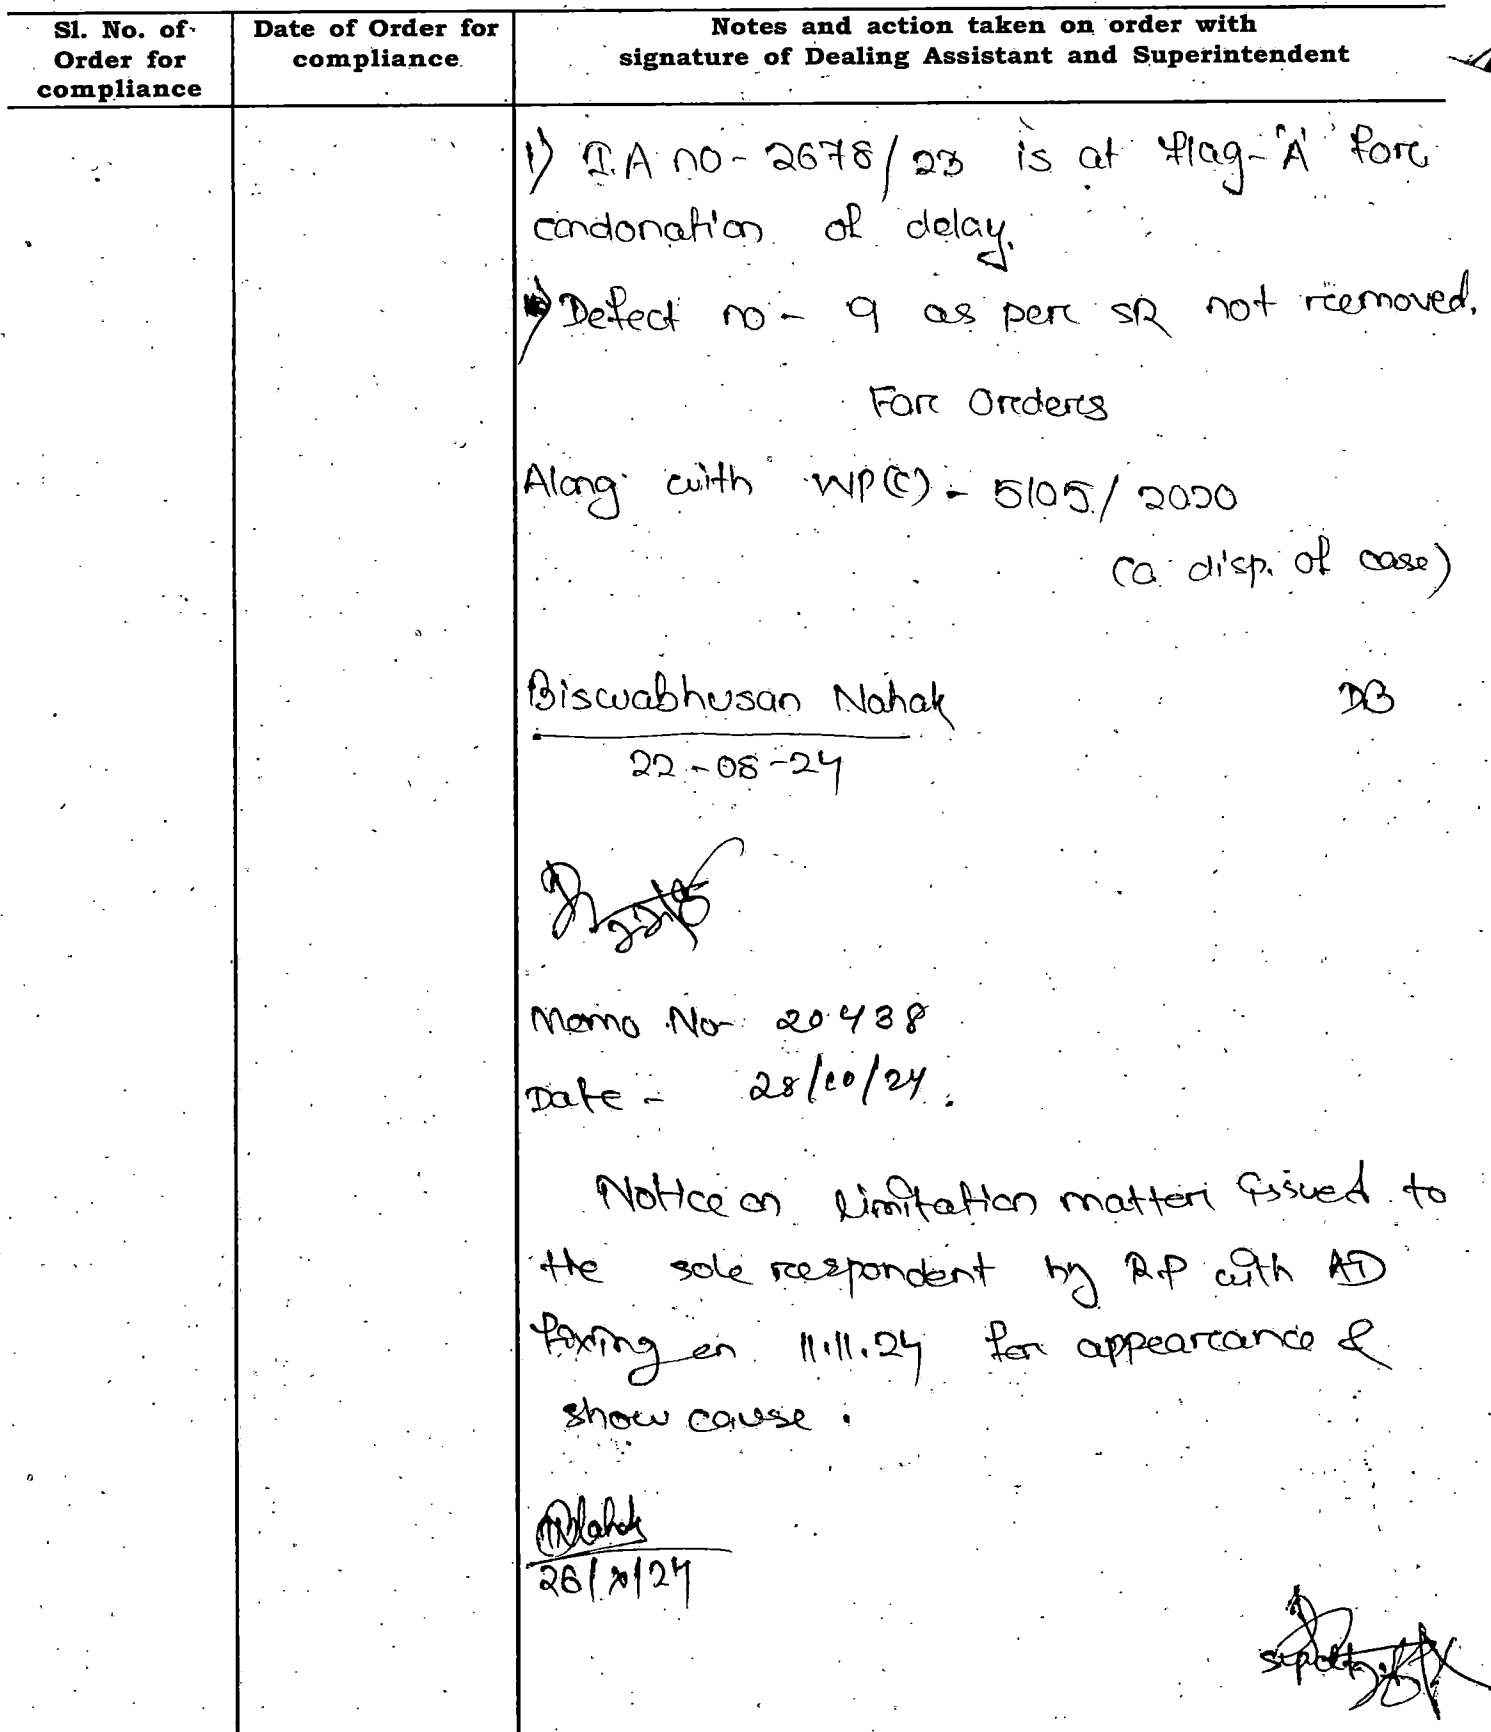 Sl. No. of Order for compliance
Date of Order for compliance
Notes and action taken on order with signature of Dealing Assistant and Superintendent
1) I.A no - 2678/23 is at flag-'A' forc
condonation of delay.
Defect no - 9 as perc SR not rcemoved.
Forc Orcdercs
Along with WP(C) - 5105/2020
(a disp. of case)
Biswabhusan Nahak
DB
22-08-24
Memo No 20438
Date - 28/10/24.
Notice on limitation matter issued to
the sole rcespondent by RP with AD
fixing on 11.11.24 for appearcance &
show cause.
Nahak
26/ /24